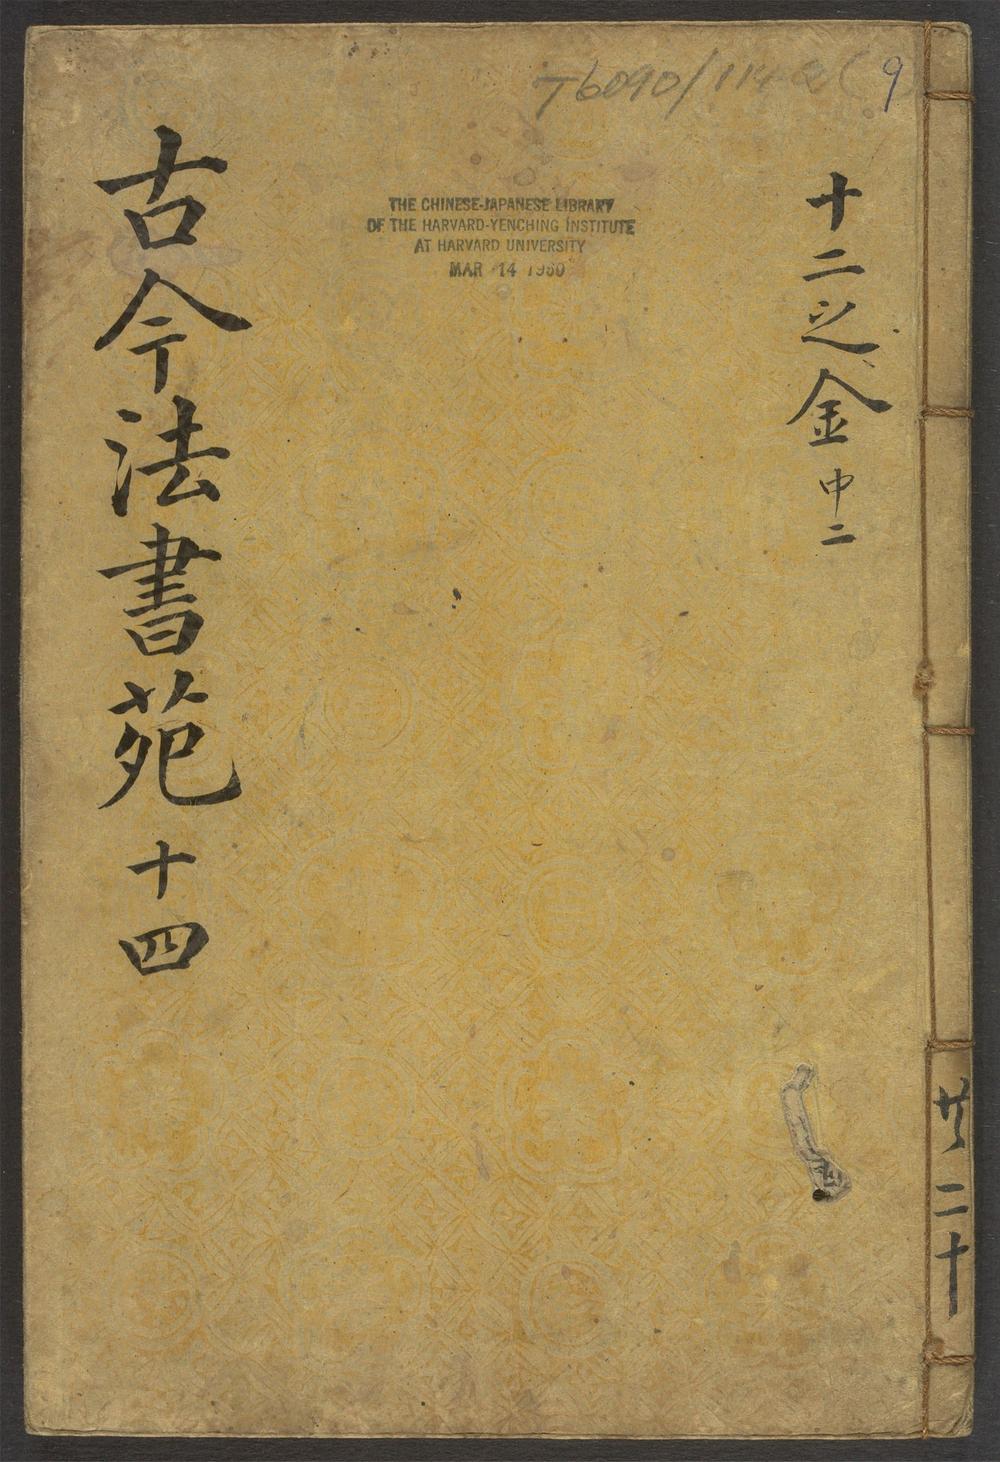 9
THE CHINESE-JAPANESE LIBRARY
OF THE HARVARD-YENCHING INSTITUTE
AT HARVARD UNIVERSITY
MAR 14 1960
十二之金中二
古今法書苑十四
共二十